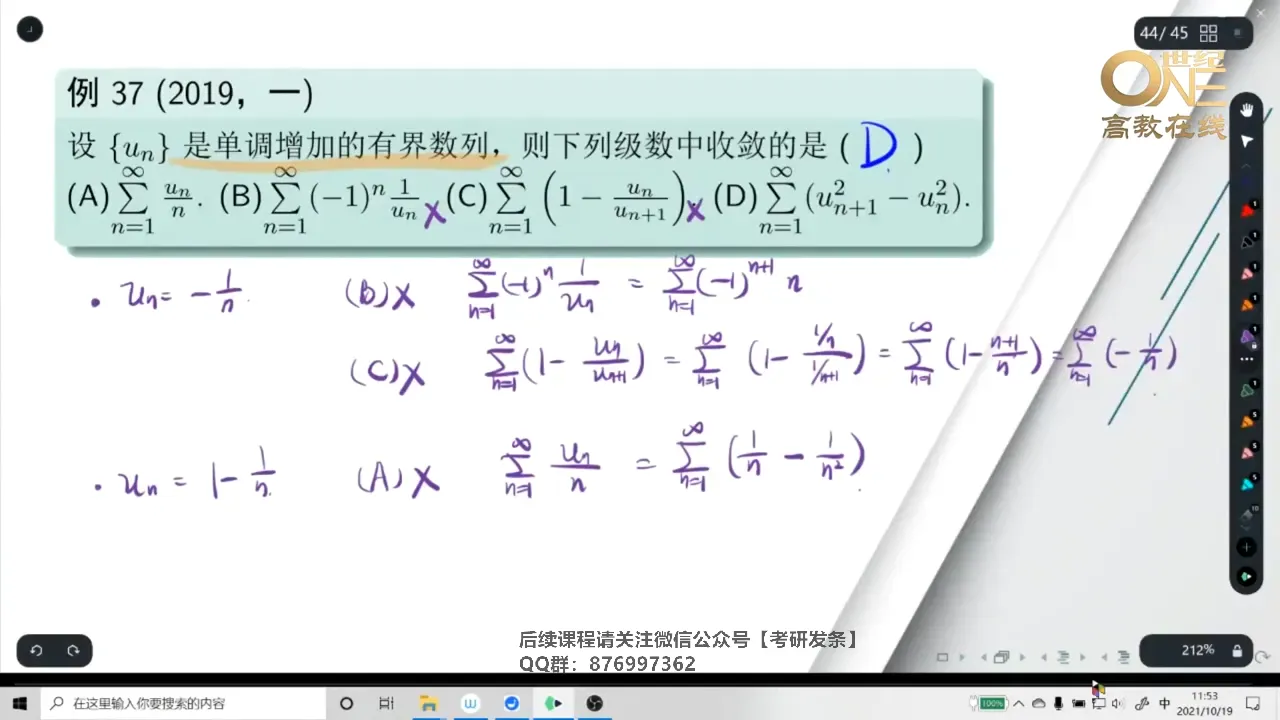 44/45
世纪
ONE
高教在线
例 37 (2019，一)
设 {u_n} 是单调增加的有界数列，则下列级数中收敛的是 ( D )
(A) ∑_{n=1}^{∞} u_n/n. (B) ∑_{n=1}^{∞} (−1)^n 1/u_n × (C) ∑_{n=1}^{∞} (1 − u_n/u_{n+1}). × (D) ∑_{n=1}^{∞} (u_{n+1}^2 − u_n^2).
• u_n = −1/n (B)× ∑_{n=1}^{∞} (−1)^n 1/u_n = ∑_{n=1}^{∞} (−1)^{n+1} n
(C)× ∑_{n=1}^{∞} (1 − u_n/u_{n+1}) = ∑_{n=1}^{∞} (1 − (1/n)/(1/n+1)) = ∑_{n=1}^{∞} (1 − n+1/n) = ∑_{n=1}^{∞} (−1/n)
• u_n = 1 − 1/n (A)× ∑_{n=1}^{∞} u_n/n = ∑_{n=1}^{∞} (1/n − 1/n²)
后续课程请关注微信公众号【考研发条】
QQ群：876997362
212%
在这里输入你要搜索的内容
100%
中
11:53
2021/10/19